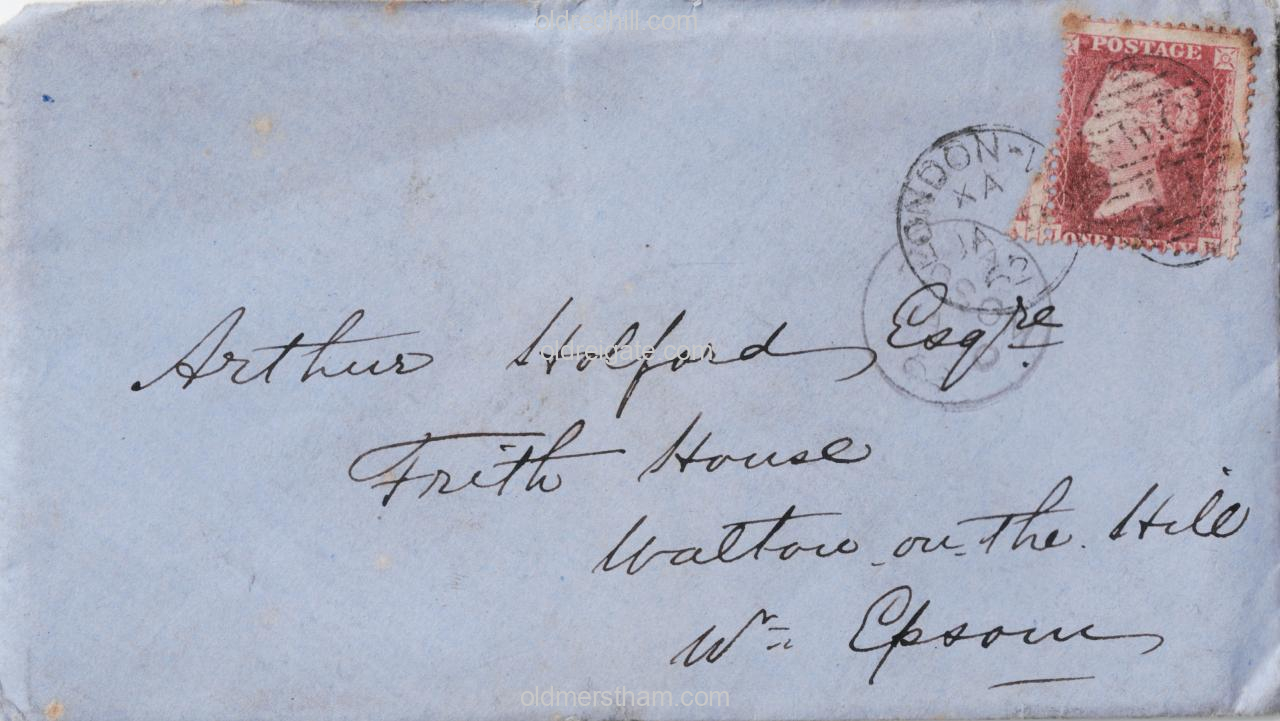 oldredhill.com
POSTAGE
LONDON-W
XA
JA
ONE PENNY
Arthur Holford Esqre
oldreigate.com
Frith House
Walton on the Hill
Nr Epsom
oldmerstham.com